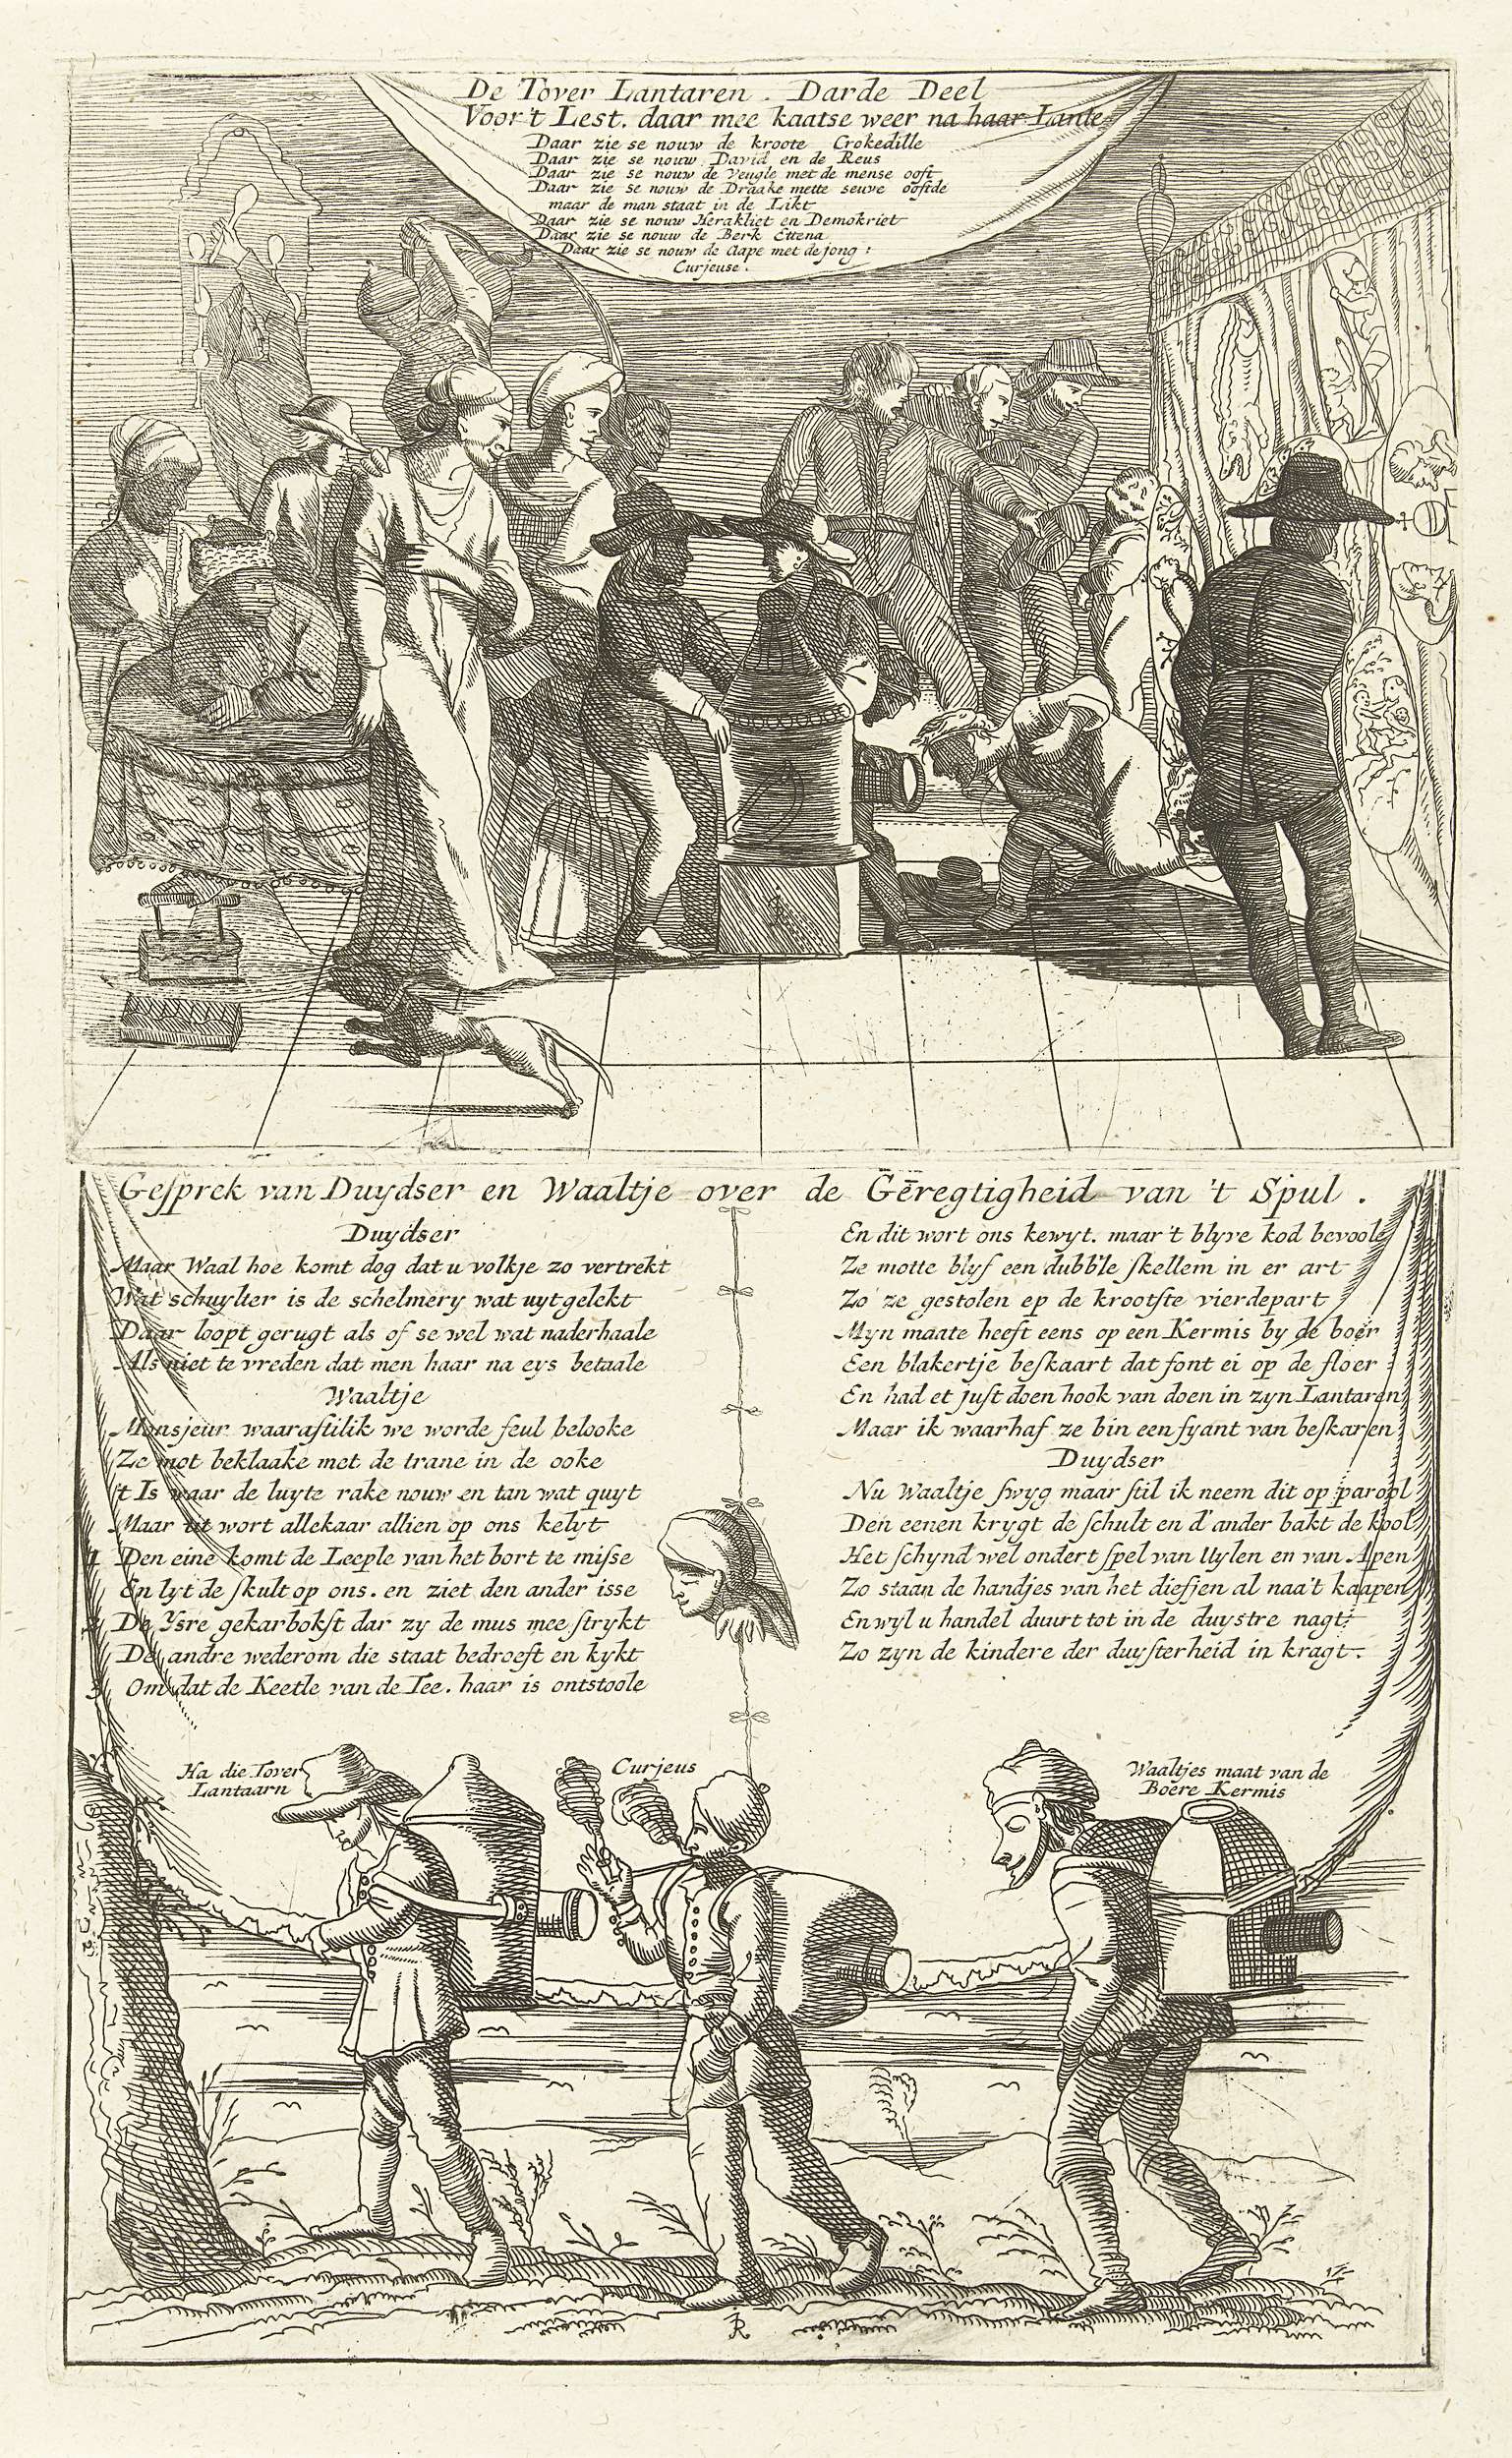 De Tover Lantaren. Darde Deel
Voor't Lest. daar mee kaatse weer na haar Lante
Daar zie se nouw de kroote Crokedille
Daar zie se nouw David en de Reus
Daar zie se nouw de Veugle met de mense ooft
Daar zie se nouw de Draake mette seuve oofide
maar de man staat in de Likt
Daar zie se nouw Herakliet en Demokriet
Daar zie se nouw de Berk Ettena
Daar zie se nouw de Aape met de jong:
Curjeuse.
Gesprek van Duydser en Waaltje over de Geregtigheid van 't Spul.
Duydser
Maar Waal hoe komt dog dat u volkje zo vertrekt
Wat schuylter is de schelmery wat uytgelekt
Daar loopt gerugt als of se wel wat naderhaale
Als niet te vreden dat men haar na eys betaale
Waaltje
Monsjeur waarastilik we worde feul belooke
Ze mot beklaake met de trane in de ooke
't Is waar de luyte rake nouw en tan wat quyt
Maar tit wort allekaar allien op ons kelyt
1 Den eine komt de Leeple van het bort te misse
En lyt de skult op ons. en ziet den ander isse
2 De Ysre gekarbokst dar zy de mus mee strykt
De andre wederom die staat bedroeft en kykt
3 Om dat de Keetle van de Tee. haar is ontstoole
En dit wort ons kewyt. maar't blyve kod bevoole
Ze motte blyf een dubb'le skellem in er art
Zo ze gestolen ep de krootste vierdepart
Myn maate heeft eens op een Kermis by de boer
Een blakertje beskaart dat font ei op de floer
En had et just doen hook van doen in zyn Lantaren
Maar ik waarhaf ze bin een fyant van beskaren
Duydser
Nu Waaltje swyg maar stil ik neem dit op parool
Den eenen krygt de schult en d'ander bakt de kool
Het schynd wel ondert spel van Uylen en van Apen
Zo staan de handjes van het diefjen al naa't kaapen
En wyl u handel duurt tot in de duystre nagt
Zo zyn de kindere der duysterheid in kragt.
Ha die Tover
Lantaarn
Curjeus
Waaltjes maat van de
Boere Kermis